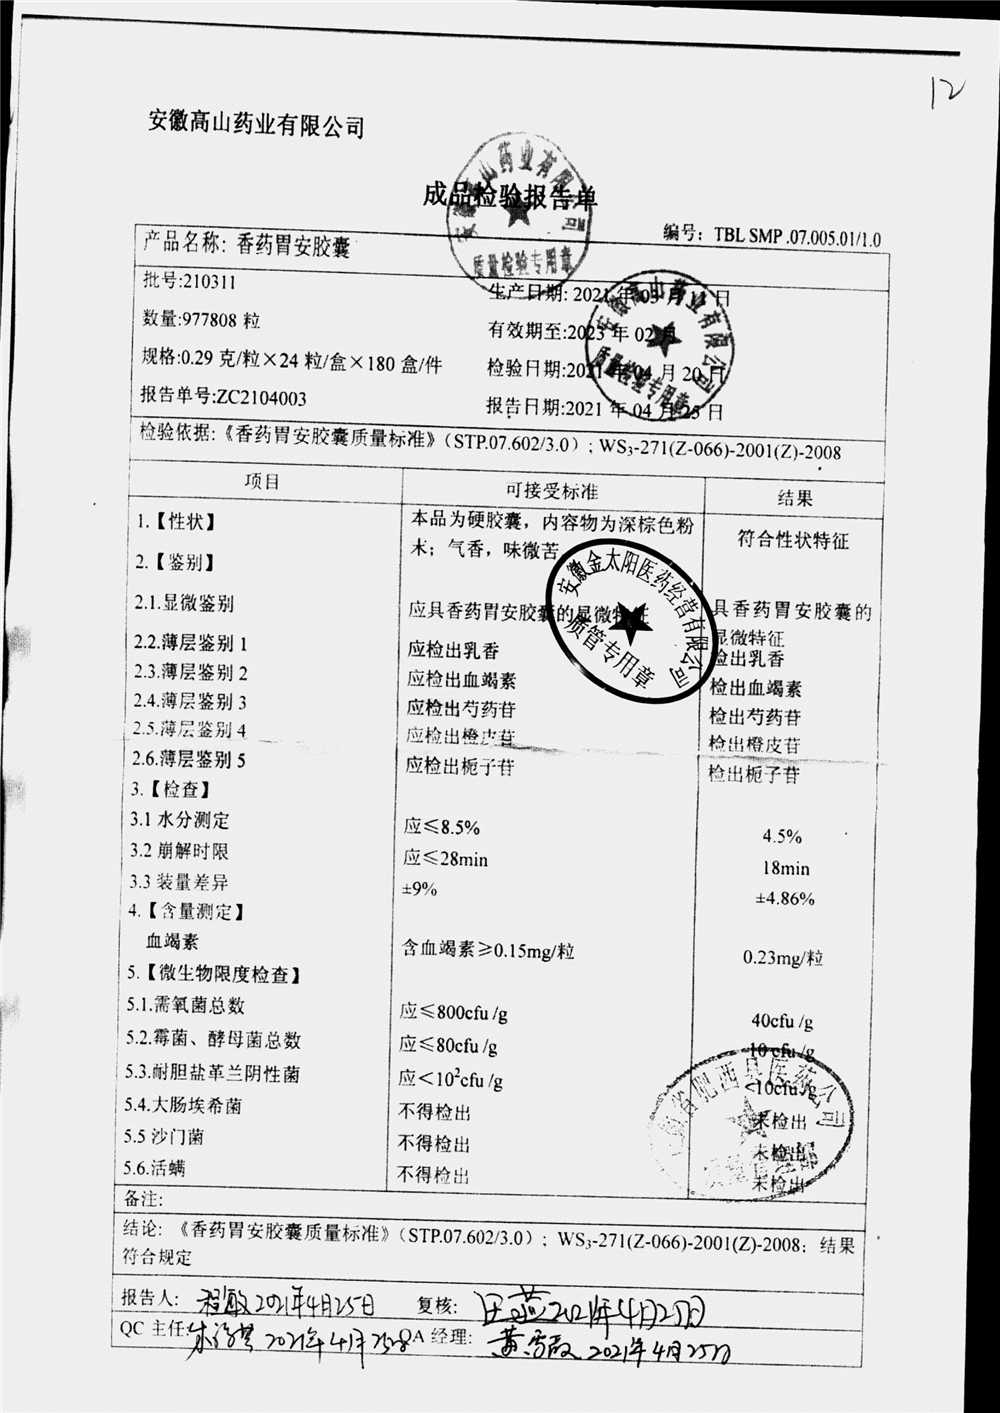 12
安徽高山药业有限公司
成品检验报告单
编号: TBL SMP .07.005.01/1.0
产品名称: 香药胃安胶囊
批号:210311
生产日期: 2021 年 03 月 11 日
数量:977808 粒
有效期至:2023 年 02 月
规格:0.29 克/粒×24 粒/盒×180 盒/件
检验日期:2021 年 04 月 20 日
报告单号:ZC2104003
报告日期:2021 年 04 月 25 日
检验依据:《香药胃安胶囊质量标准》（STP.07.602/3.0）; WS3-271(Z-066)-2001(Z)-2008
项目 可接受标准 结果
1.【性状】 本品为硬胶囊，内容物为深棕色粉末；气香，味微苦 符合性状特征
2.【鉴别】
2.1.显微鉴别 应具香药胃安胶囊的显微特征 具香药胃安胶囊的显微特征
2.2.薄层鉴别 1 应检出乳香 检出乳香
2.3.薄层鉴别 2 应检出血竭素 检出血竭素
2.4.薄层鉴别 3 应检出芍药苷 检出芍药苷
2.5.薄层鉴别 4 应检出橙皮苷 检出橙皮苷
2.6.薄层鉴别 5 应检出栀子苷 检出栀子苷
3.【检查】
3.1 水分测定 应≤8.5% 4.5%
3.2 崩解时限 应≤28min 18min
3.3 装量差异 ±9% ±4.86%
4.【含量测定】
血竭素 含血竭素≥0.15mg/粒 0.23mg/粒
5.【微生物限度检查】
5.1.需氧菌总数 应≤800cfu /g 40cfu /g
5.2.霉菌、酵母菌总数 应≤80cfu /g 10 cfu /g
5.3.耐胆盐革兰阴性菌 应＜10²cfu /g <10cfu /g
5.4.大肠埃希菌 不得检出 未检出
5.5 沙门菌 不得检出 未检出
5.6.活螨 不得检出 未检出
备注:
结论: 《香药胃安胶囊质量标准》（STP.07.602/3.0）; WS3-271(Z-066)-2001(Z)-2008; 结果
符合规定
报告人: 2021年4月25日 复核: 2021年4月25日
QC 主任: 2021年4月25日 QA 经理: 2021年4月25日
安徽高山药业有限公司
质量检验专用章
安徽高山药业有限公司
质量检验专用章
安徽金太阳医药经营有限公司
质管专用章
省肥西县医药公司